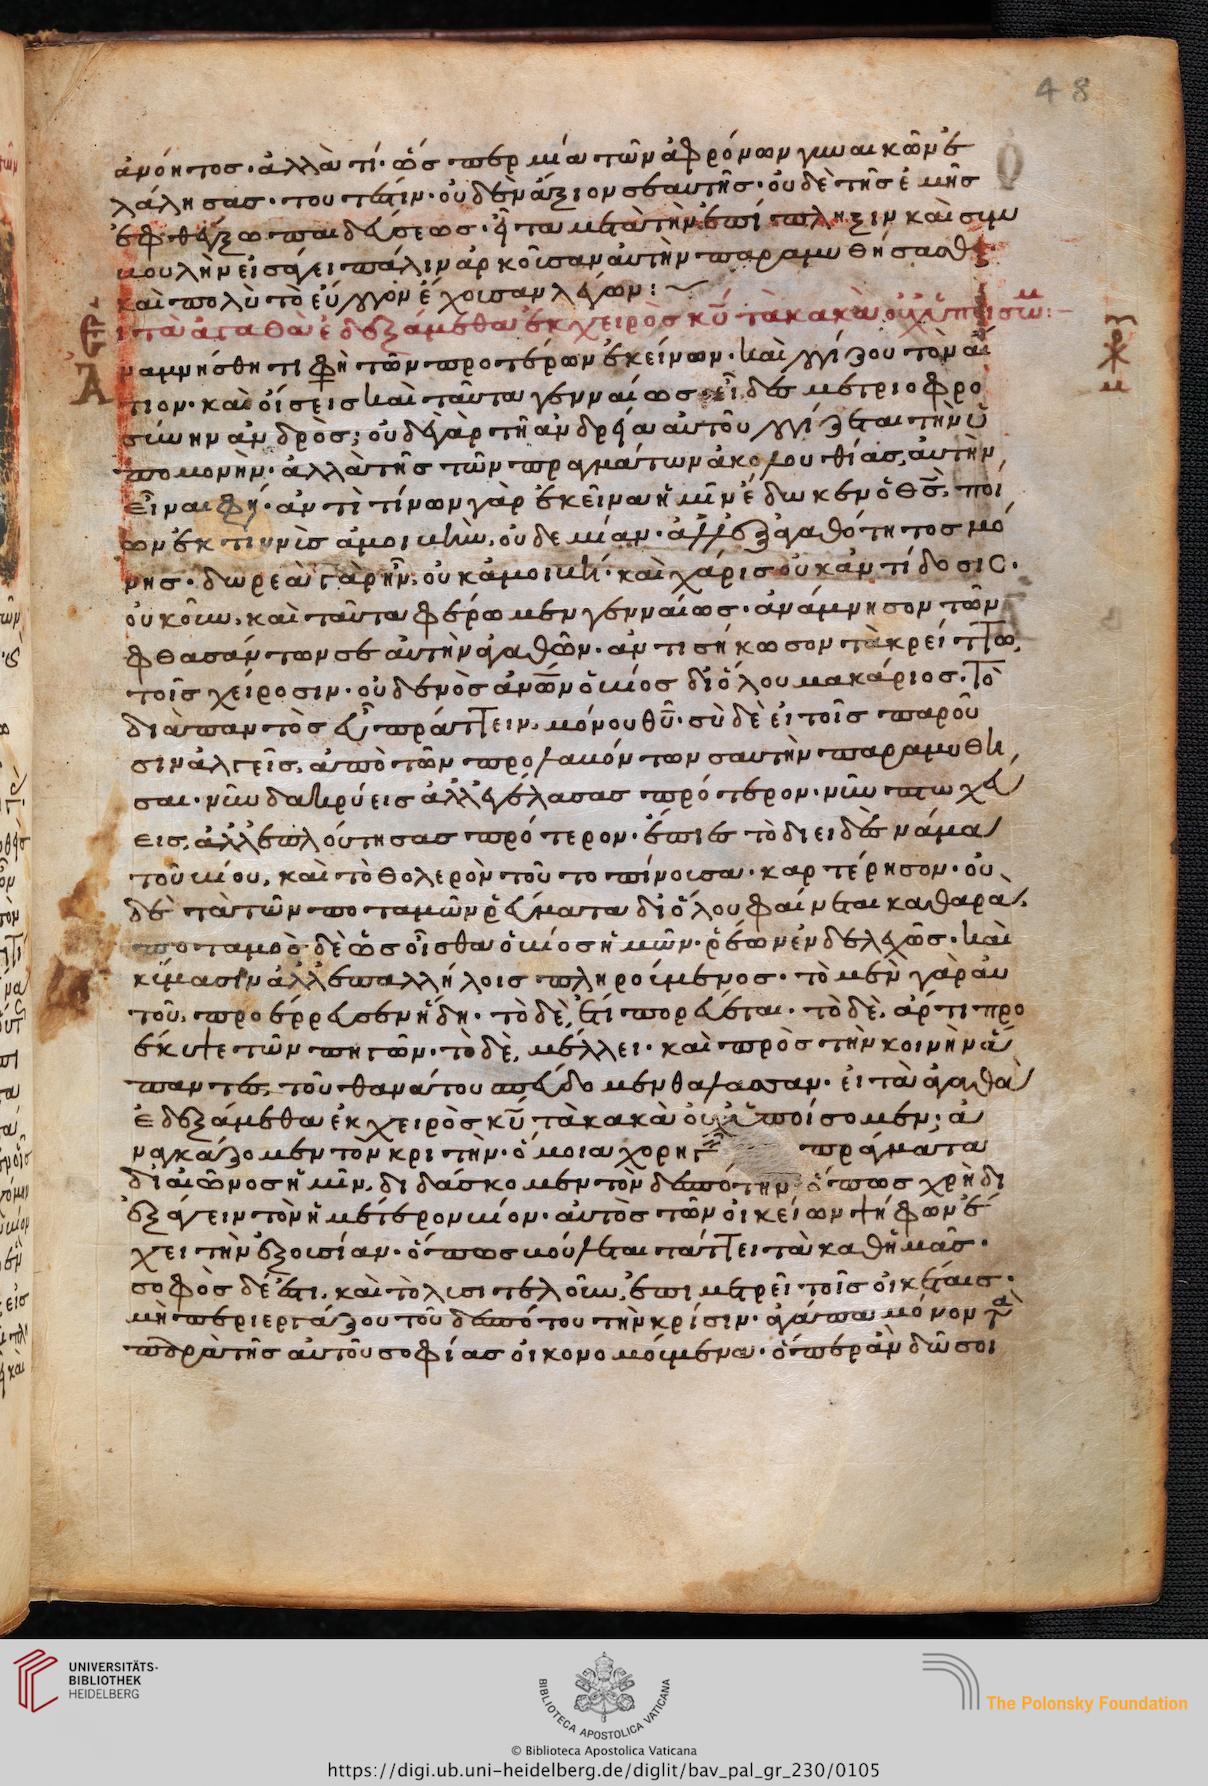 48
ἀνόητος· ἀλλὰ τί· ὥσπερ μία τῶν ἀφρόνων γυναικῶν ἐ
λάλησας· τουτέστιν· οὐδὲν ἄξιον σεαυτῆς· οὐδὲ τῆς ἐμῆς
ἐφθέγξω παιδεύσεως· εἶτα μετὰ τὴν ἐπίπληξιν καὶ συμ
βουλὴν εἰσάγει πάλιν ἀρκοῦσαν αὐτὴν παραμυθήσασθαι
καὶ πολὺ τὸ εὔλογον ἔχουσαν λέγων:
Εἰ τὰ ἀγαθὰ ἐδεξάμεθα ἐκ χειρὸς κυ τὰ κακὰ οὐχ ὑποίσωμ:
Ἀναμνήσθητι φη τῶν προτέρων ἐκείνων· καὶ λογίζου τὸν αἴ
τιον· καὶ οἴσεις καὶ ταῦτα γενναίως· εἶδες μετριοφρο
σύνην ἀνδρὸς; οὐδὲ γὰρ τῆ ἀνδρεία αὐτοῦ λογίζεται τὴν ὑ
πομονὴν· ἀλλὰ τῆς τῶν πραγμάτων ἀκολουθίας, αὐτὴν
εἶναι φη· ἀντὶ τίνων γὰρ ἐκεῖνα ἡμῖν ἔδωκεν ὁ θς, ποί
ων ἐκτιννὺς ἀμοιβὴν, οὐδεμίαν· ἀλλ' ἐξ ἀγαθότητος μό
νης· δωρεὰ γὰρ ἦν, οὐκ ἀμοιβή· καὶ χάρις οὐκ ἀντίδοσις·
οὐκοῦν, καὶ ταῦτα φέρωμεν γενναίως· ἀνάμνησον τῶν
φθασάντων σεαυτὴν ἀγαθῶν· ἀντισήκωσον τὰ κρείττω,
τοῖς χείροσιν· οὐδενὸς ἀνων ὁ βίος δι' ὅλου μακάριος· τὸ
διὰ παντὸς εὖ πράττειν, μόνου θυ· σὺ δὲ εἰ τοῖς παροῦ
σιν ἀλγεῖς, ἀπὸ τῶν προλαβόντων σαυτὴν παραμύθη
σαι· νῦν δακρύεις ἀλλ' ἐγέλασας πρότερον· νῦν πτωχεύ
εις, ἀλλ' ἐπλούτησας πρότερον· ἔπιες τὸ διειδὲς νάμα
τοῦ βίου, καὶ τὸ θολερὸν τοῦτο πίνουσα· καρτέρησον· οὐ
δὲ τὰ τῶν ποταμῶν ῥεύματα δι' ὅλου φαίνεται καθαρὰ.
ποταμὸς δὲ ὡς οἶσθα ὁ βίος ἡμῶν· ῥέων ἐνδελεχῶς· καὶ
κύμασιν ἀλλεπαλλήλοις πληρούμενος· τὸ μὲν γὰρ αὐ
τοῦ, προέρρευσεν ἤδη· τὸ δὲ, ἔτι πορεύεται· τὸ δὲ, ἄρτι προ
έκυψε τῶν πηγῶν· τὸ δὲ, μέλλει· καὶ πρὸς τὴν κοινὴν ἅ
παντες, τοῦ θανάτου σπεύδομεν θάλασσαν· εἰ τὰ ἀγαθὰ
ἐδεξάμεθα ἐκ χειρὸς κυ τὰ κακὰ οὐχ ὑποίσομεν; ἀ
ναγκάζομεν τὸν κριτὴν· ὅμοια χορηγεῖν πράγματα
δι' αἰῶνος ἡμῖν, διδάσκομεν τὸν δεσπότην ὅπως χρὴ δι
εξάγειν τὸν ἡμέτερον βίον· αὐτὸς τῶν οἰκείων ψήφων ἔ
χει τὴν ἐξουσίαν· ὅπως βούλεται τάττει τὰ καθ' ἡμᾶς·
σοφὸς δέ ἐστι, καὶ τὸ λυσιτελοῦν, ἐπιμετρεῖ τοῖς οἰκέταις·
μὴ περιεργάζου τοῦ δεσπότου τὴν κρίσιν· ἀγάπα μόνον τὰ
παρὰ τῆς αὐτοῦ σοφίας οἰκονομούμενα· ὅπερ ἂν δῶ σοι
UNIVERSITÄTS-
BIBLIOTHEK
HEIDELBERG
BIBLIOTECA APOSTOLICA VATICANA
The Polonsky Foundation
© Biblioteca Apostolica Vaticana
https://digi.ub.uni-heidelberg.de/diglit/bav_pal_gr_230/0105